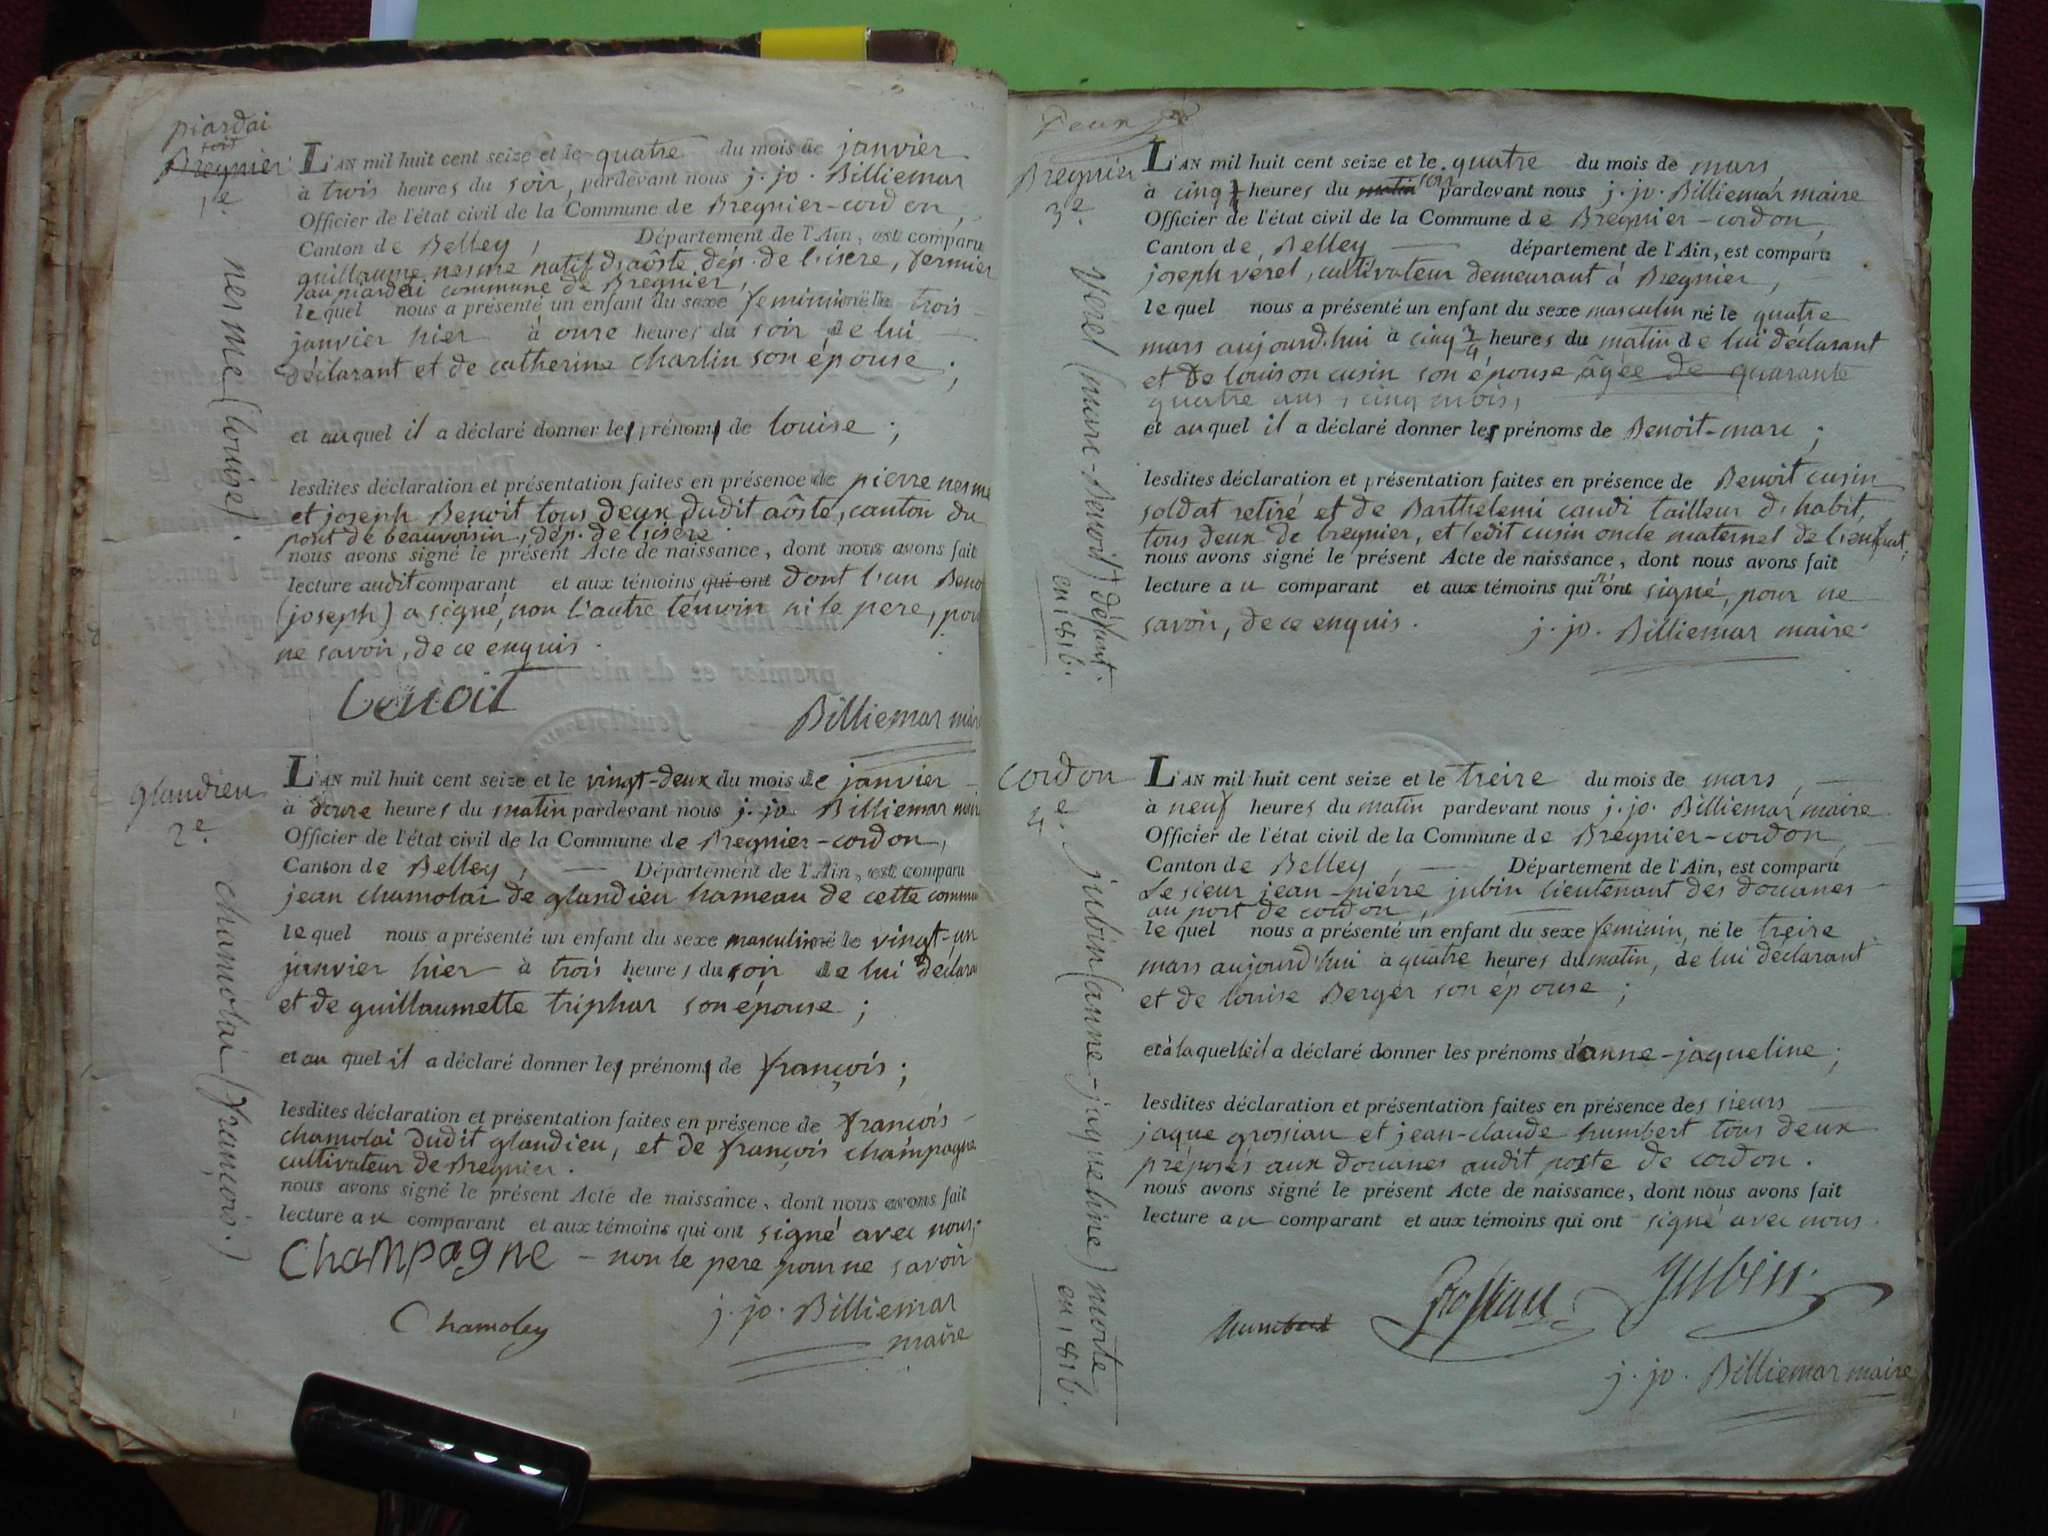 piardai
soit
Bregnier
1e.
nesme (louise).
L'AN mil huit cent seize et le quatre du mois de janvier
à trois heures du soir, pardevant nous j. jo. Billiemar
Officier de l'état civil de la Commune de Bregnier-cordon,
Canton de Belley, Département de l'Ain, est comparu
guillaume nesme natif d'aôste dép. de l'isère, fermier
au piardai commune de Bregnier,
le quel nous a présenté un enfant du sexe feminin né le trois
janvier hier à onze heures du soir de lui
déclarant et de catherine charlin son épouse;
et au quel il a déclaré donner les prénoms de louise;
lesdites déclaration et présentation faites en présence de pierre nesme
et joseph Benoit tous deux dudit aôste, canton du
pont de beauvoisin, dép. de l'isère
nous avons signé le présent Acte de naissance, dont nous avons fait
lecture audit comparant et aux témoins, qui ont dont l'un Benoi
(joseph) a signé, non l'autre témoin ni le pere, pour
ne savoir, de ce enquis.
benoit
Billiemar mair
glandieu
2e.
chamolai (françois.)
L'AN mil huit cent seize et le vingt-deux du mois de janvier
à douze heures du matin pardevant nous j. jo. Billiemar maire
Officier de l'état civil de la Commune de Bregnier-cordon,
Canton de Belley, Département de l'Ain, est comparu
jean chamolai de glandieu hameau de cette commun
le quel nous a présenté un enfant du sexe masculin né le vingt-un
janvier hier à trois heures du soir de lui déclara
et de guillaumette triphar son épouse;
et au quel il a déclaré donner les prénoms de françois;
lesdites déclaration et présentation faites en présence de françois
chamolai dudit glandieu, et de françois champagne
cultivateur de Bregnier.
nous avons signé le présent Acte de naissance, dont nous avons fait
lecture au comparant et aux témoins qui ont signé avec nous;
Champagne - non le pere pour ne savoir
Chamoley
j. jo. Billiemar
maire
Deux
Bregnier
3e.
verel (marc-Benoit) défunt
en 1816.
L'AN mil huit cent seize et le quatre du mois de mars
à cinq heures du matin soir pardevant nous j. jo. Billiemar maire
Officier de l'état civil de la Commune de Bregnier-cordon,
Canton de Belley département de l'Ain, est comparu
joseph verel, cultivateur demeurant à Bregnier,
le quel nous a présenté un enfant du sexe masculin né le quatre
mars aujourd'hui à cinq 3/4 heures du matin de lui déclarant
et de louison cusin son épouse âgée de quarante
quatre ans, cinq mois,
et au quel il a déclaré donner les prénoms de Benoit-marc;
lesdites déclaration et présentation faites en présence de Benoit cusin
soldat retiré et de Barthelemi candi tailleur d'habit,
tous deux de bregnier, et ledit cusin oncle maternel de l'enfant;
nous avons signé le présent Acte de naissance, dont nous avons fait
lecture au comparant et aux témoins qui n'ont signé, pour ne
savoir, de ce enquis.
j. jo. Billiemar maire.
cordon
4e.
jubin (anne-jaqueline) morte
en 1816.
L'AN mil huit cent seize et le treize du mois de mars,
à neuf heures du matin pardevant nous j. jo. Billiemar maire
Officier de l'état civil de la Commune de Bregnier-cordon,
Canton de Belley, Département de l'Ain, est comparu
Le sieur jean-pierre jubin lieutenant des douanes
au port de cordon,
le quel nous a présenté un enfant du sexe feminin, né le treize
mars aujourd'hui à quatre heures du matin, de lui déclarant
et de louise Berger son épouse;
et à la quelle il a déclaré donner les prénoms d'anne-jaqueline;
lesdites déclaration et présentation faites en présence des sieurs
jaque grossian et jean-claude humbert tous deux
préposés aux douanes audit poste de cordon.
nous avons signé le présent Acte de naissance, dont nous avons fait
lecture au comparant et aux témoins qui ont signé avec nous.
humbert
Grossian
Jubin
j. jo. Billiemar maire